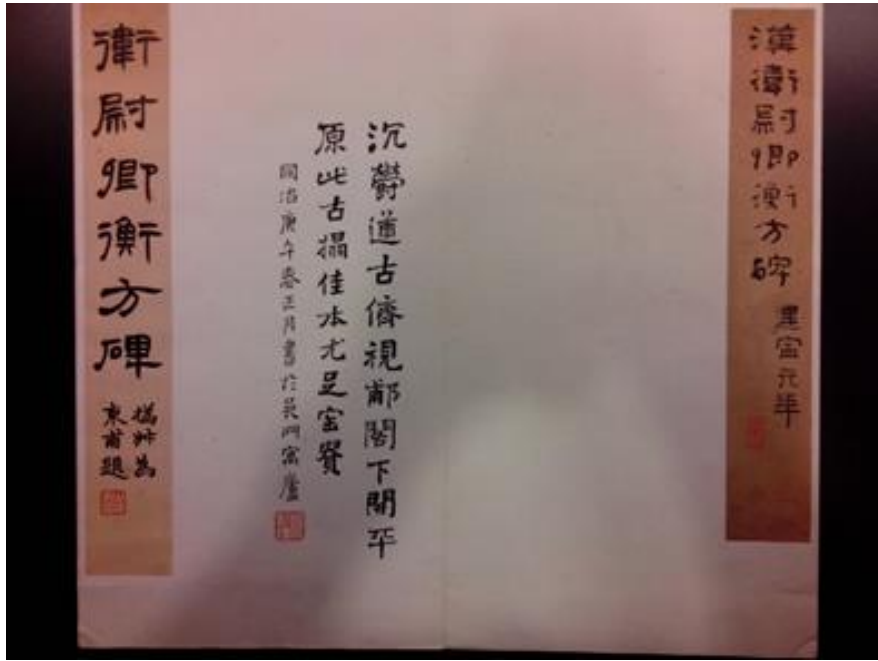 漢衛尉卿衡方碑
建寧元年
沉鬱遒古儕視郙閣下開平
原此古搨佳本尤足寶賢
同治庚午春正月書於吳門寓廬
衛尉卿衡方碑
為
東甫題